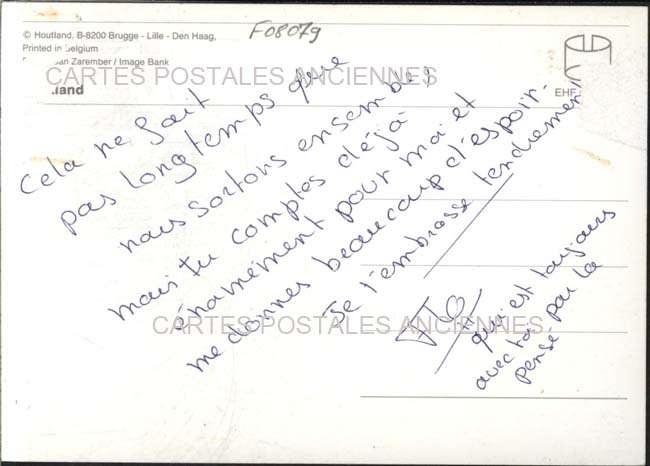 © Houtland, B-8200 Brugge - Lille - Den Haag,
F08079
Printed in Belgium
an Zarember / Image Bank
CARTES POSTALES ANCIENNES
land
EHF
Cela ne fait
pas longtemps que
nous sortons ensemble
mais tu comptes déjà
énormément pour moi et
me donnes beaucoup d'espoir.
Je t'embrasse tendrement
Flo
qui est toujours
avec toi par la
pensé
CARTES POSTALES ANCIENNES